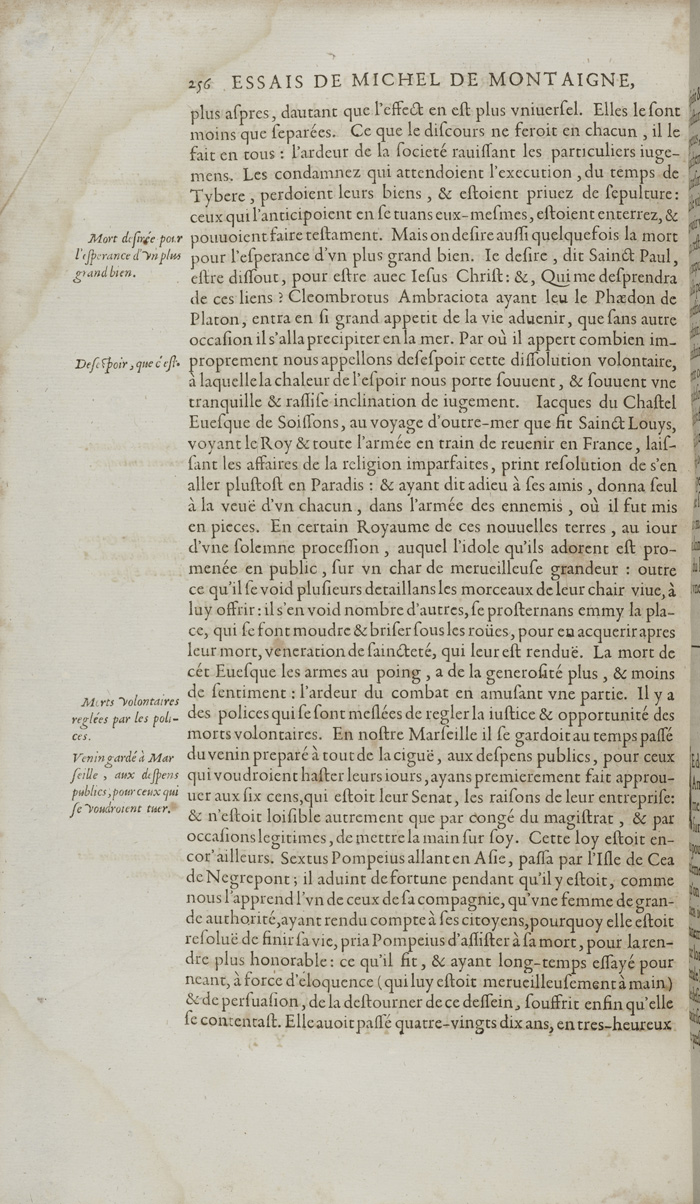 256 ESSAIS DE MICHEL DE MONTAIGNE,
plus aſpres, dautant que l'effect en eſt plus vniuerſel. Elles le ſont
moins que ſeparées. Ce que le diſcours ne feroit en chacun, il le
fait en tous : l'ardeur de la ſocieté rauiſſant les particuliers iuge-
mens. Les condamnez qui attendoient l'execution, du temps de
Tybere, perdoient leurs biens, & eſtoient priuez de ſepulture:
ceux qui l'anticipoient en ſe tuans eux-meſmes, eſtoient enterrez, &
pouuoient faire teſtament. Mais on deſire auſſi quelquefois la mort
pour l'eſperance d'vn plus grand bien. Ie deſire, dit Sainct Paul,
eſtre diſſout, pour eſtre auec Ieſus Chriſt: &, Qui me deſprendra
de ces liens ? Cleombrotus Ambraciota ayant leu le Phædon de
Platon, entra en ſi grand appetit de la vie aduenir, que ſans autre
occaſion il s'alla precipiter en la mer. Par où il appert combien im-
proprement nous appellons deſeſpoir cette diſſolution volontaire,
à laquelle la chaleur de l'eſpoir nous porte ſouuent, & ſouuent vne
tranquille & raſſiſe inclination de iugement. Iacques du Chaſtel
Eueſque de Soiſſons, au voyage d'outre-mer que fit Sainct Louys,
voyant le Roy & toute l'armée en train de reuenir en France, laiſ-
ſant les affaires de la religion imparfaites, print reſolution de s'en
aller pluſtoſt en Paradis : & ayant dit adieu à ſes amis, donna ſeul
à la veuë d'vn chacun, dans l'armée des ennemis, où il fut mis
en pieces. En certain Royaume de ces nouuelles terres, au iour
d'vne ſolemne proceſſion, auquel l'idole qu'ils adorent eſt pro-
menée en public, ſur vn char de merueilleuſe grandeur : outre
ce qu'il ſe void pluſieurs detaillans les morceaux de leur chair viue, à
luy offrir : il s'en void nombre d'autres, ſe proſternans emmy la pla-
ce, qui ſe font moudre & briſer ſous les roües, pour en acquerir apres
leur mort, veneration de ſaincteté, qui leur eſt renduë. La mort de
cét Eueſque les armes au poing, a de la generoſité plus, & moins
de ſentiment : l'ardeur du combat en amuſant vne partie. Il y a
des polices qui ſe ſont meſlées de regler la iuſtice & opportunité des
morts volontaires. En noſtre Marſeille il ſe gardoit au temps paſſé
du venin preparé à tout de la ciguë, aux deſpens publics, pour ceux
qui voudroient haſter leurs iours, ayans premierement fait approu-
uer aux ſix cens, qui eſtoit leur Senat, les raiſons de leur entrepriſe:
& n'eſtoit loiſible autrement que par congé du magiſtrat, & par
occaſions legitimes, de mettre la main ſur ſoy. Cette loy eſtoit en-
cor' ailleurs. Sextus Pompeius allant en Aſie, paſſa par l'Iſle de Cea
de Negrepont ; il aduint de fortune pendant qu'il y eſtoit, comme
nous l'apprend l'vn de ceux de ſa compagnie, qu'vne femme de gran-
de authorité, ayant rendu compte à ſes citoyens, pourquoy elle eſtoit
reſoluë de finir ſa vie, pria Pompeius d'aſſiſter à ſa mort, pour la ren-
dre plus honorable : ce qu'il fit, & ayant long-temps eſſayé pour
neant, à force d'éloquence (qui luy eſtoit merueilleuſement à main)
& de perſuaſion, de la deſtourner de ce deſſein, ſouffrit enfin qu'elle
ſe contentaſt. Elle auoit paſſé quatre-vingts dix ans, en tres-heureux
Mort deſirée pour
l'eſperance d'vn plus
grand bien.
Deſeſpoir, que c'eſt.
Morts volontaires
reglées par les poli-
ces.
Venin gardé à Mar
ſeille, aux deſpens
publics, pour ceux qui
ſe voudroient tuer.